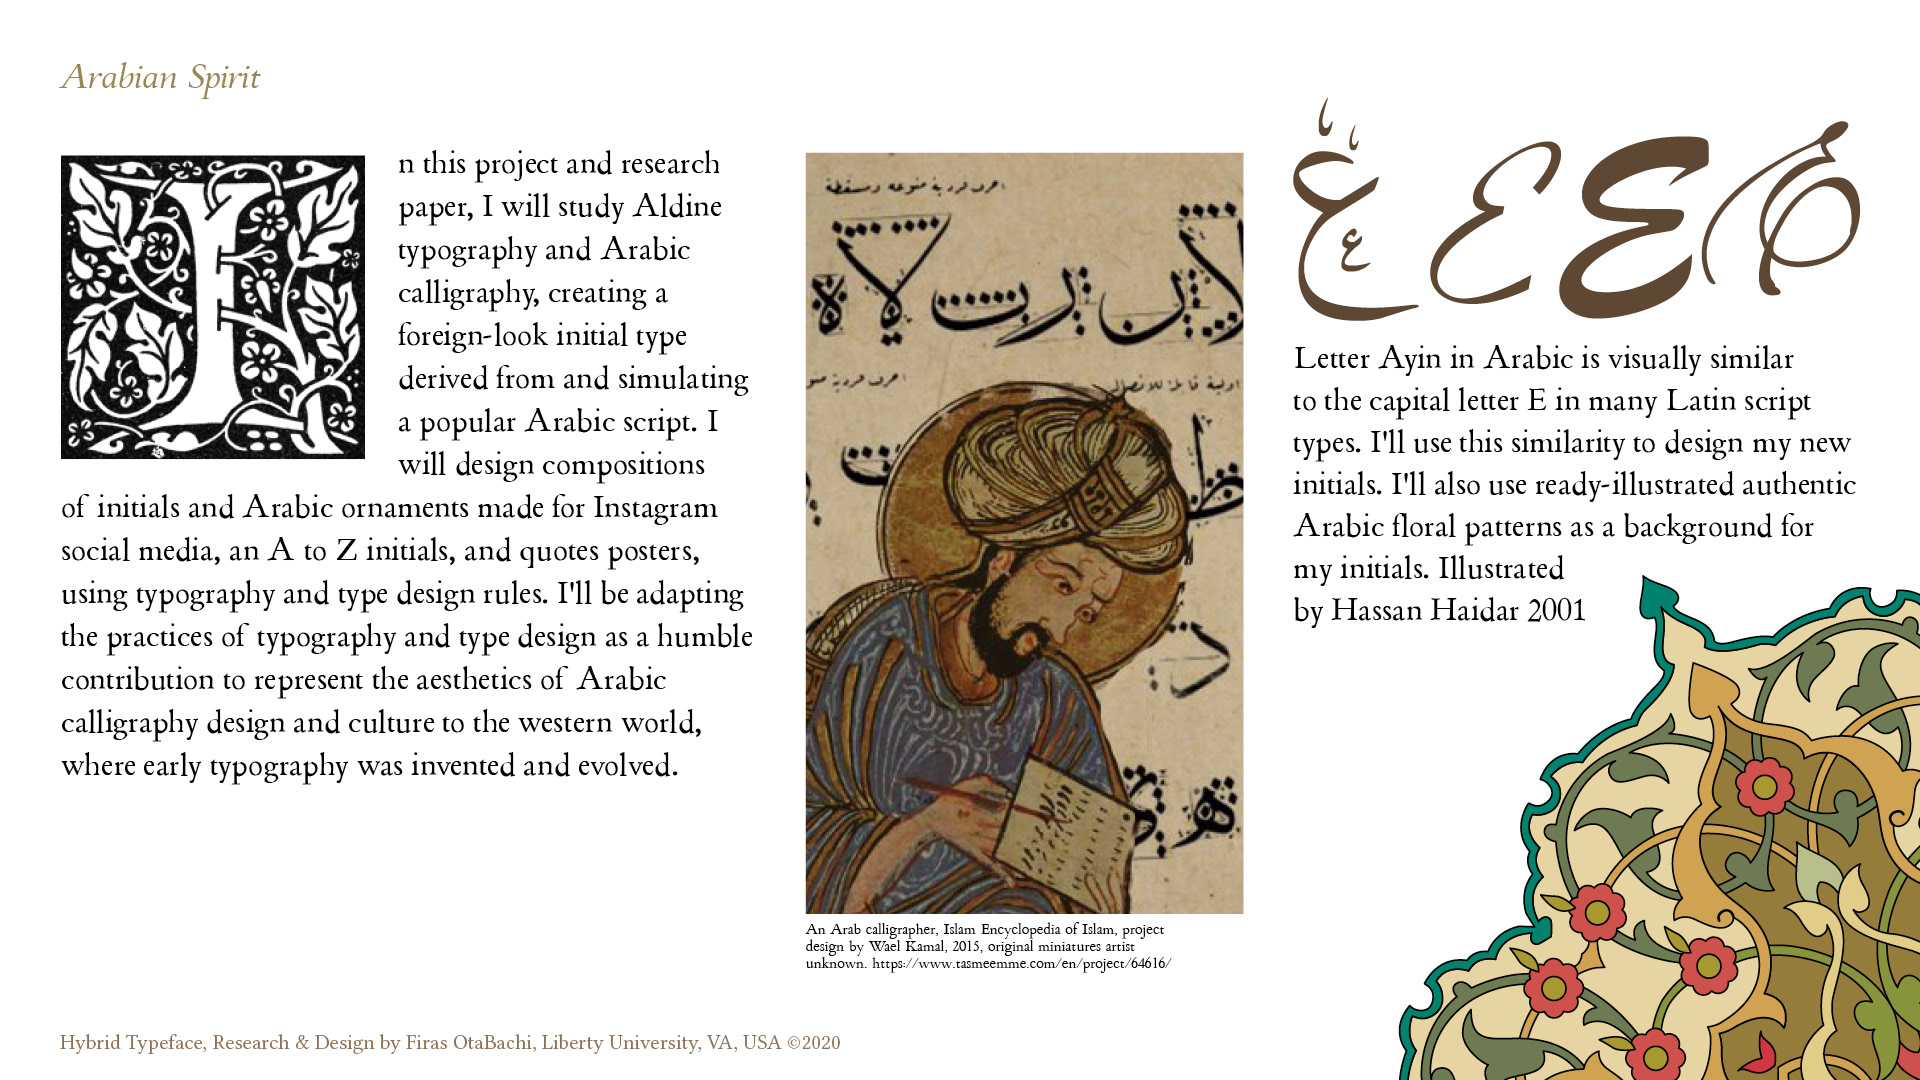 Arabian Spirit
I
n this project and research
paper, I will study Aldine
typography and Arabic
calligraphy, creating a
foreign-look initial type
derived from and simulating
a popular Arabic script. I
will design compositions
of initials and Arabic ornaments made for Instagram
social media, an A to Z initials, and quotes posters,
using typography and type design rules. I'll be adapting
the practices of typography and type design as a humble
contribution to represent the aesthetics of Arabic
calligraphy design and culture to the western world,
where early typography was invented and evolved.
احرف فردية منوعة ومسقطة
An Arab calligrapher, Islam Encyclopedia of Islam, project
design by Wael Kamal, 2015, original miniatures artist
unknown. https://www.tasmeemme.com/en/project/64616/
ع E E
Letter Ayin in Arabic is visually similar
to the capital letter E in many Latin script
types. I'll use this similarity to design my new
initials. I'll also use ready-illustrated authentic
Arabic floral patterns as a background for
my initials. Illustrated
by Hassan Haidar 2001
Hybrid Typeface, Research & Design by Firas OtaBachi, Liberty University, VA, USA ©2020